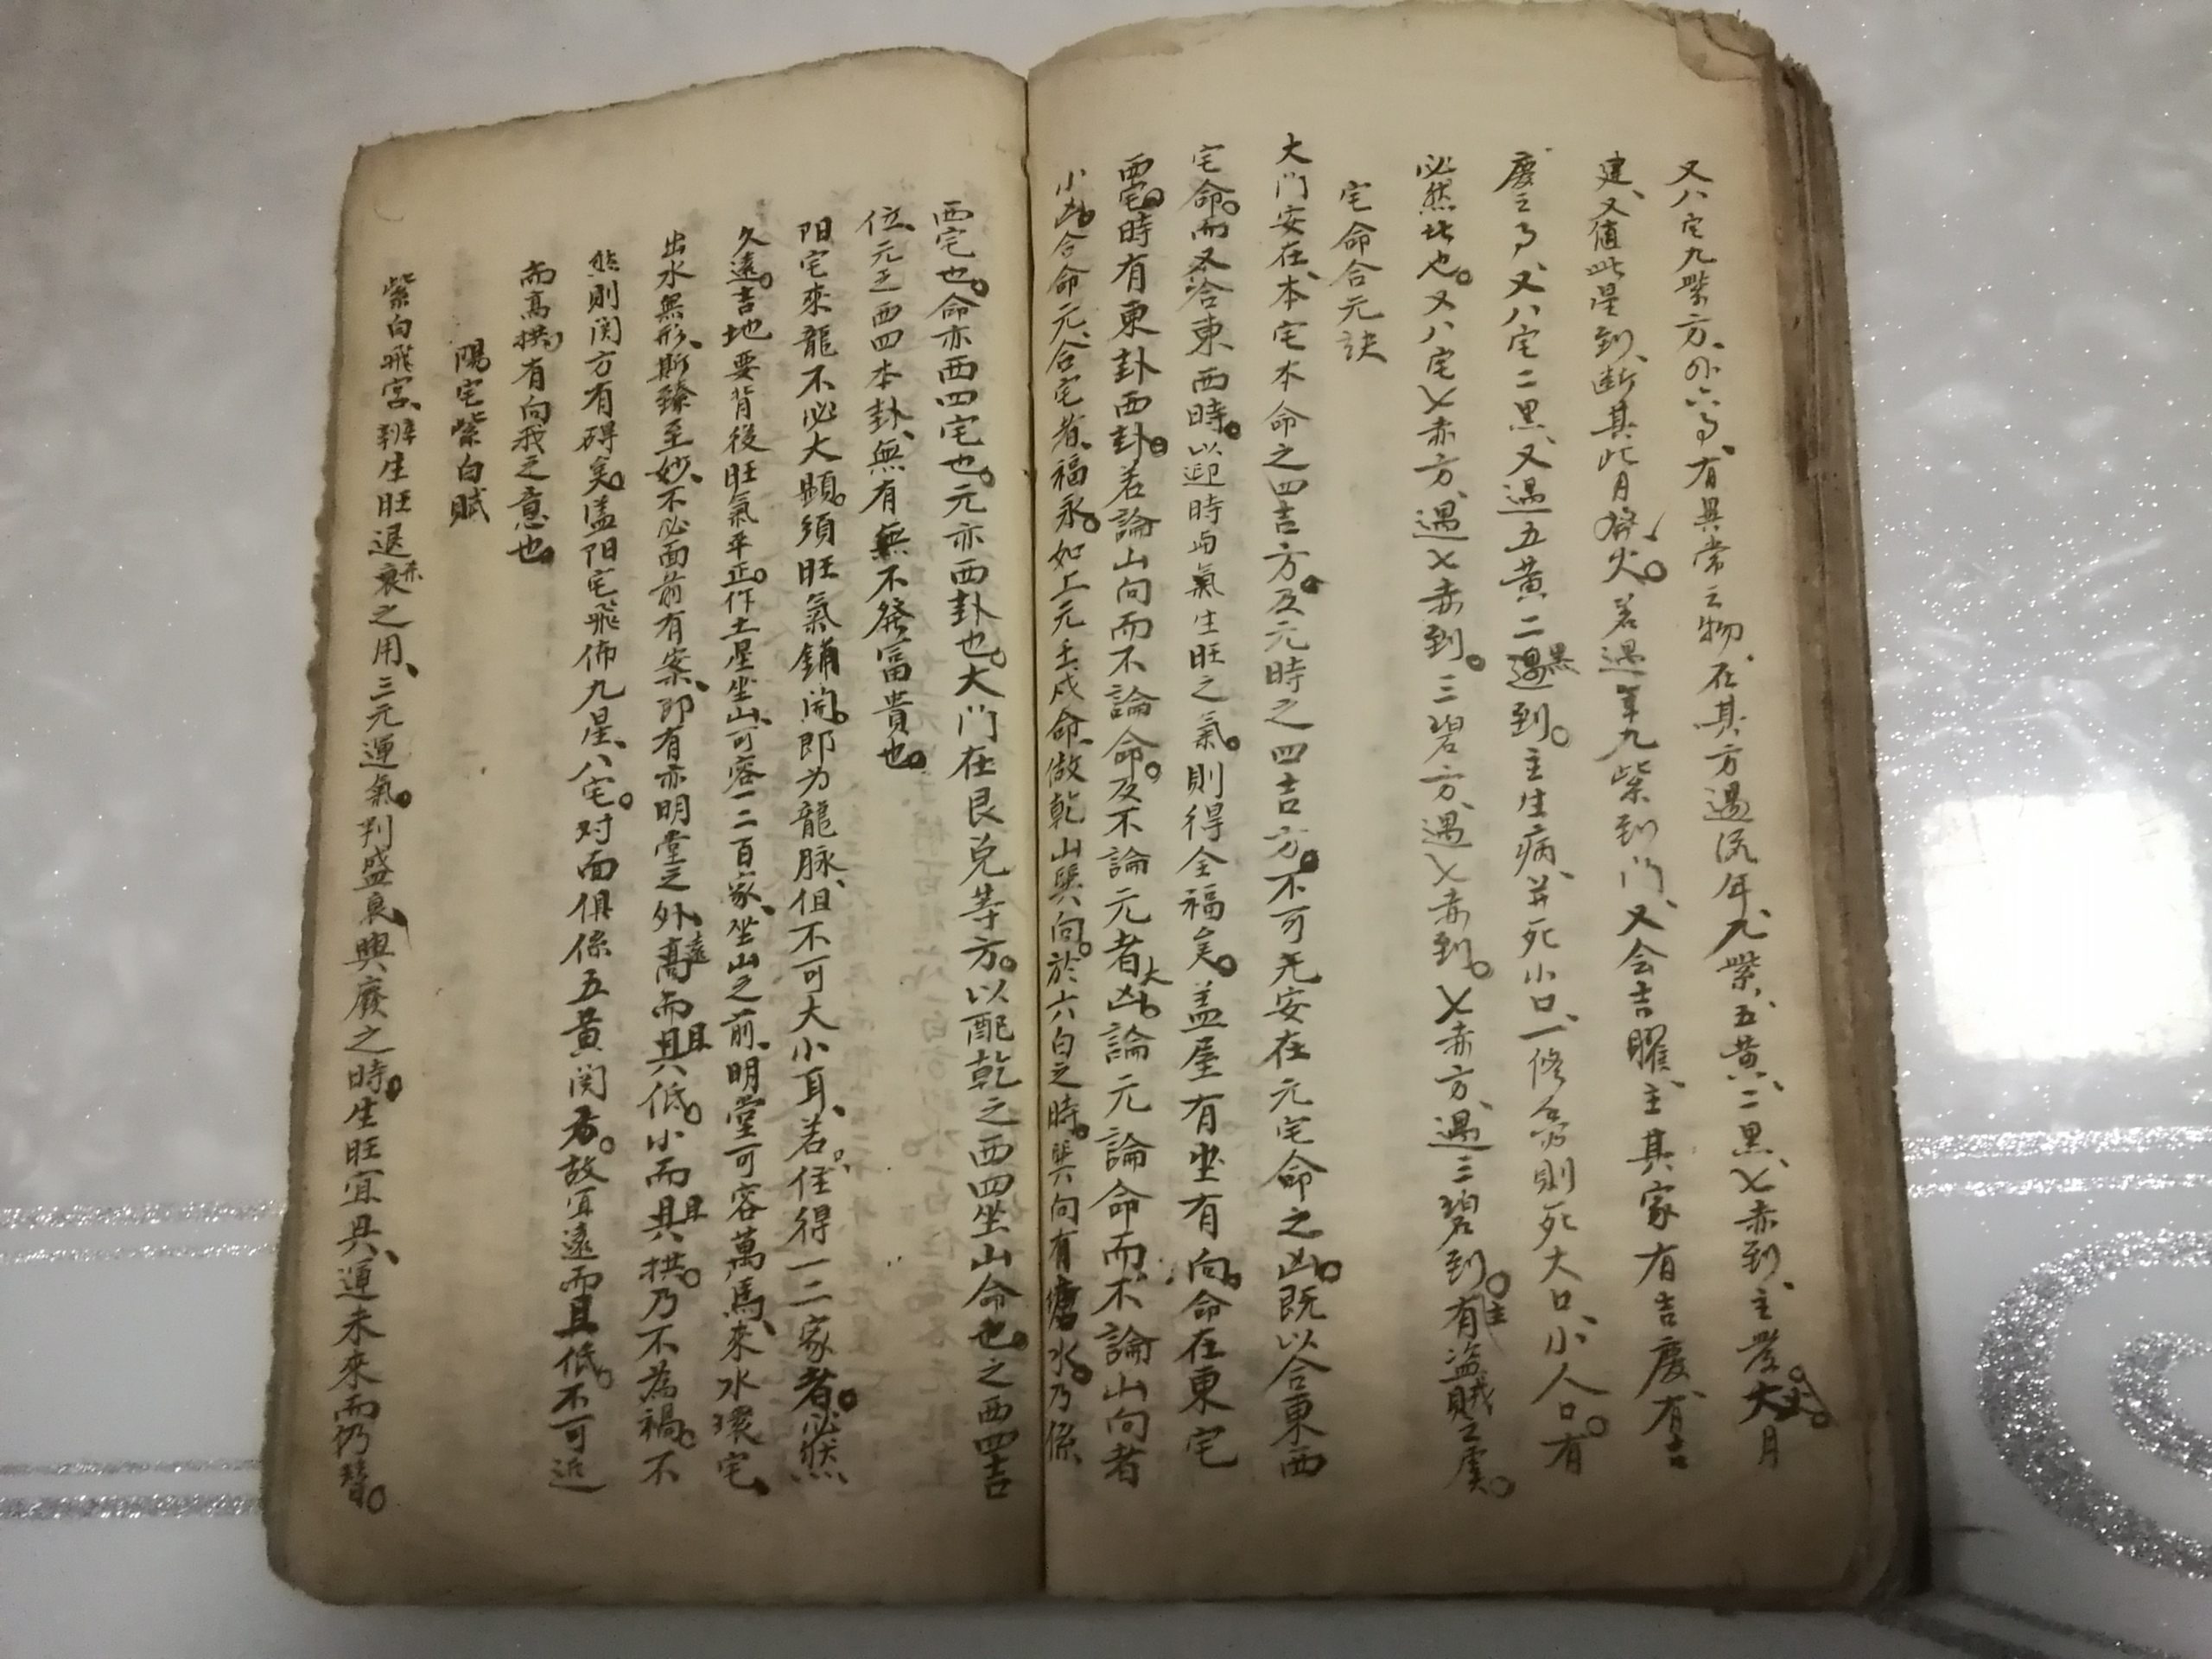 又八宅九紫方、外六事、有異常之物、在其方遇流年九紫、五黃、二黑、七赤到、主發火。大月
建、又值此星到、斷其此月發火。若遇年九紫到門、又会吉曜、主其家有吉慶、有吉
慶之事、又八宅二黑、又遇五黃二黑到。主生病、并死小口、一修則死大口、小人口。有
必然此也。又八宅七赤方、遇七赤到。三碧方、遇七赤到。七赤方、遇三碧到。主有盜賊之虞。
宅命合元訣
大門安在、本宅本命之四吉方。及元時之四吉方。不可无安在元宅命之凶。既以合東西
宅命。而又合東西時。以迎時面氣生旺之氣。則得全福矣。盖屋有坐有向。命在東宅
西宅。時有東卦西卦。若論山向而不論命。及不論元者大凶。論元論命而不論山向者
小凶。合命元、合宅者、福永。如上元壬戌命、做乾山巽向。於六白之時。巽向有水。乃係
西宅也。命亦西四宅也。元亦西卦也。大門在艮兌等方。以配乾之西四坐山命也。之西四吉
位、元之西四本卦、無有無不發富貴也。
阳宅來龍不必大顯。須旺氣鋪阔。即为龍脉、但不可大小耳、若住得一二家者。必然
久遠。吉地要背後旺氣平正。作土星坐山、可容一二百家、坐山之前、明堂可容萬馬、來水環宅、
出水無形、斯臻至妙、不必面前有案、即有亦明堂之外、遠高而且低。小而且拱。乃不為禍。不
然則関方有碍矣。盖阳宅飛佈九星、八宅。对面俱係五黃関方。故宜遠而且低。不可近
而高拱、有向我之意也。
陽宅紫白賦
紫白飛宮、辨生旺退衰之用、三元運氣。判盛衰興廢之時。生旺宜具、運未來而仍替。